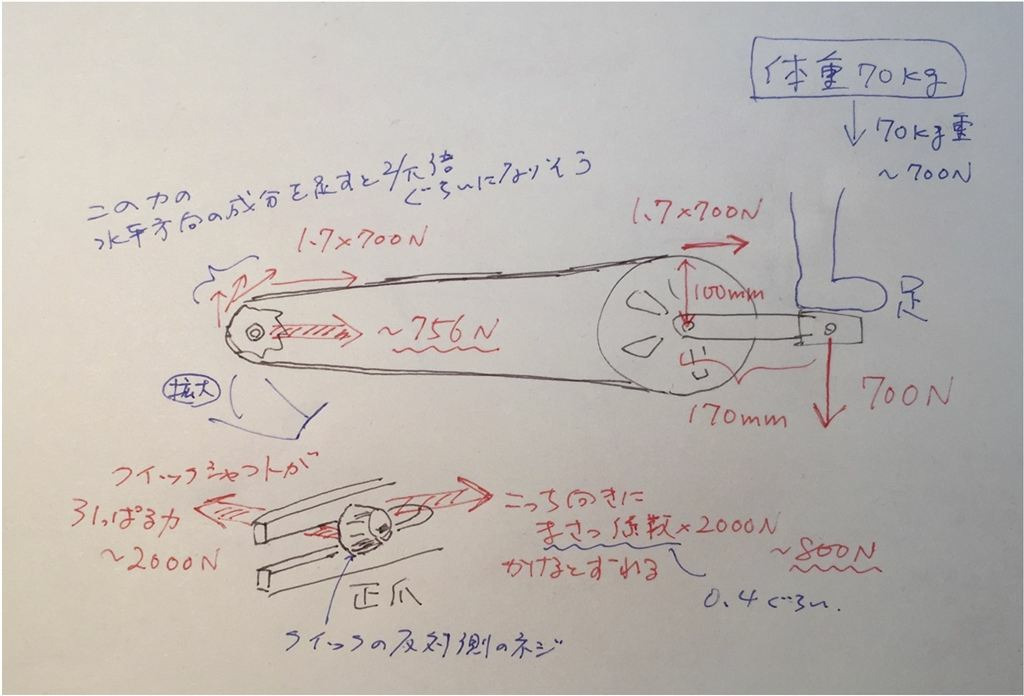 体重70kg
70kg重
~700N
この力の
水平方向の成分を足すと2/π倍
ぐらいになりそう
1.7×700N
1.7×700N
100mm
足
~756N
700N
170mm
拡大
クイックシャフトが
引っぱる力
~2000N
こっち向きに
まさつ係数×2000N
かけるとずれる
~800N
0.4ぐらい.
正爪
クイックの反対側のネジ